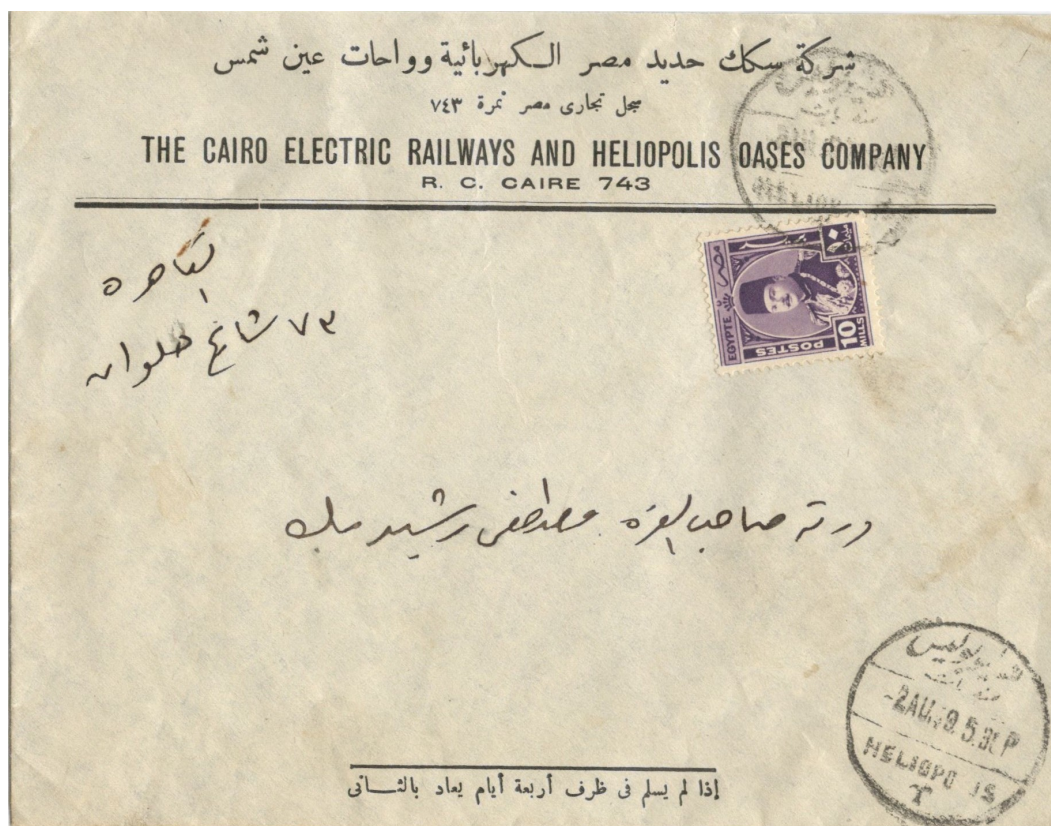 شركة سكك حديد مصر الكهربائية وواحات عين شمس
سجل تجارى مصر نمرة ٧٤٣
THE CAIRO ELECTRIC RAILWAYS AND HELIOPOLIS OASES COMPANY
R. C. CAIRE 743
هليوبوليس
HELIOP
مصر
١٠
مليمات
EGYPTE
POSTES
10
MILLS
القاهرة
٧٣ شارع حلوان
ورثة صاحب العزة مصطفى رشيد بك
هليوبوليس
-2AU. 9.5.3 P
HELIOPO IS
T
إذا لم يسلم فى ظرف أربعة أيام يعاد بالثانى